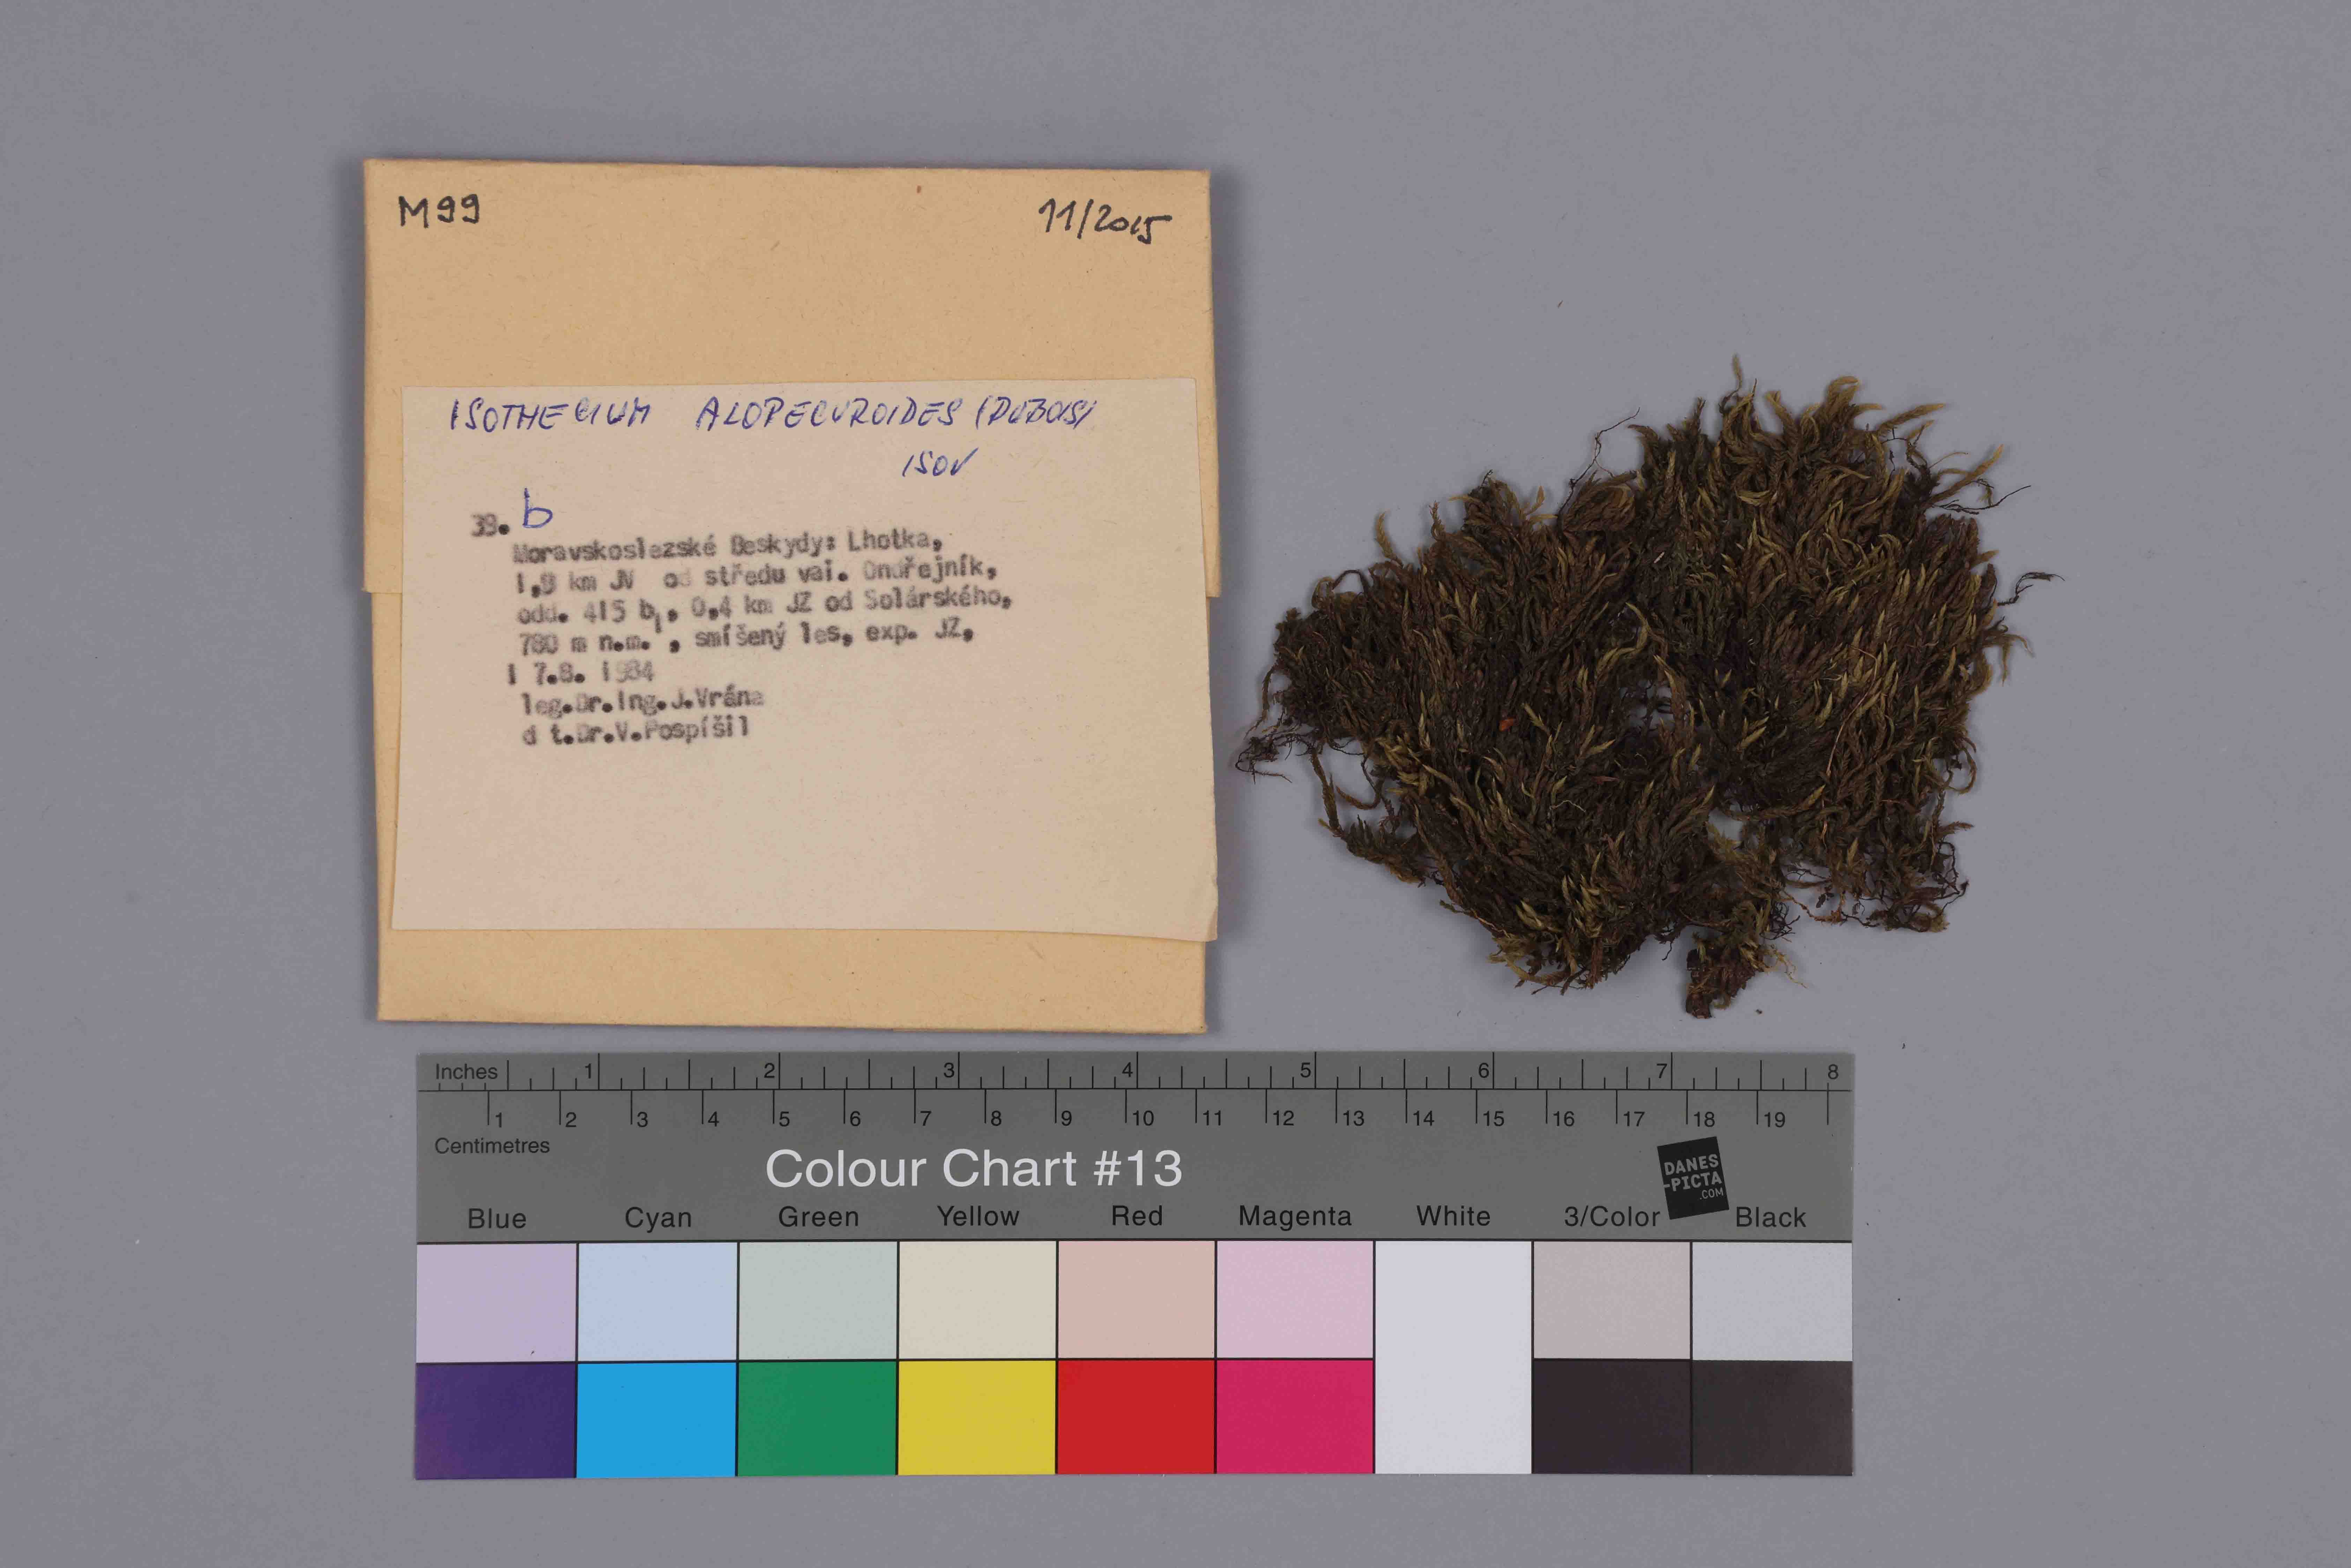 M99
11/2015
ISOTHECIUM ALOPECUROIDES (DUBOIS)
ISOV
39. b
Moravskoslezské Beskydy: Lhotka,
1,9 km JV od středu vsi. Ondřejník,
odd. 415 b1, 0,4 km JZ od Solárského,
780 m n.m. , smíšený les, exp. JZ,
1 7.8. 1984
leg.Dr.Ing.J.Vrána
d t.Dr.V.Pospíšil
Inches 1 2 3 4 5 6 7 8
1 2 3 4 5 6 7 8 9 10 11 12 13 14 15 16 17 18 19
Centimetres
Colour Chart #13
DANES
-PICTA
.COM
Blue Cyan Green Yellow Red Magenta White 3/Color Black